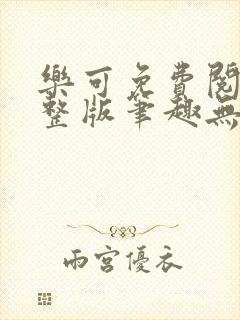 樂可免費閱
整版筆趣無
雨宮優衣